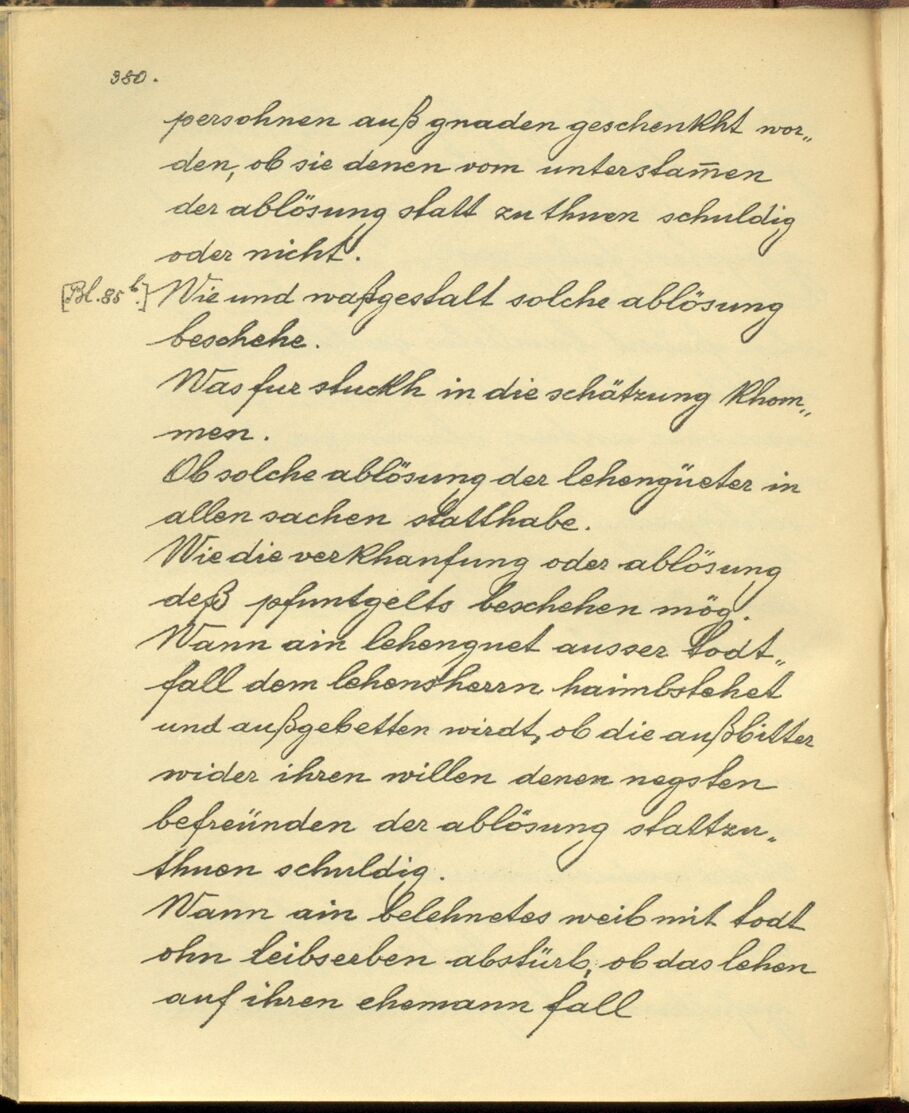 380.
persohnen auß gnaden geschenkht wor„
den, ob sie denen vom unterstam̄en
der ablösung statt zu thuen schuldig
oder nicht.
[Bl. 85 b.] Wie und waßgestalt solche ablösung
beschehe.
Was fur stuckh in die schätzung khom„
men.
Ob solche ablösung der lehengüeter in
allen sachen statthabe.
Wie die verkhaufung oder ablösung
deß pfuntgelts beschehen mög.
Wann ain lehenguet ausser todt„
fall dem lehensherrn haimbstehet
und außgebetten wirdt, ob die außbitter
wider ihren willen denen negsten
befreünden der ablösung stattzu„
thuen schuldig.
Wann ain belehnetes weib mit todt
ohn leibserben abstürb, ob das lehen
auf ihren ehemann fall